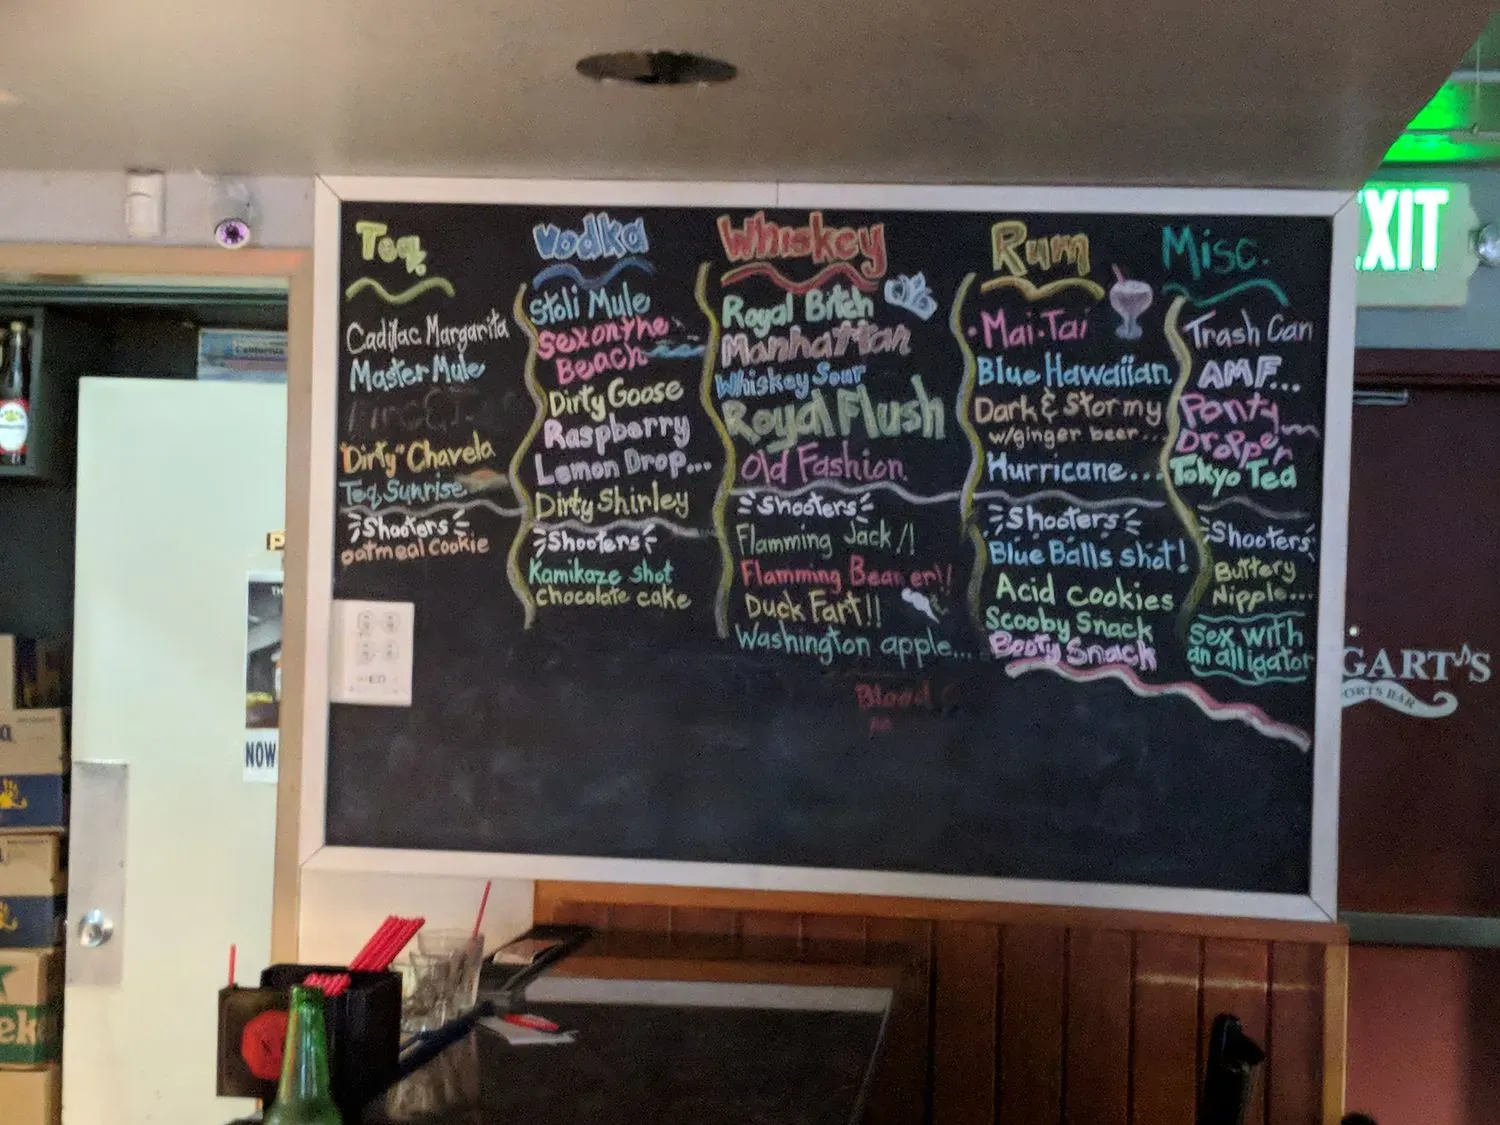 Teq.
Cadilac Margarita
Master Mule
"Dirty" Chavela
Teq. Sunrise
Shooters
oatmeal cookie
Vodka
Stoli Mule
Sex on the
Beach
Dirty Goose
Raspberry
Lemon Drop...
Dirty Shirley
Shooters
Kamikaze shot
chocolate cake
Whiskey
Royal Bitch
Manhattan
Whiskey Sour
Royal Flush
Old Fashion
Shooters
Flamming Jack!!
Flamming
Duck Fart!!
Washington apple...
Blood
Rum
Mai-Tai
Blue Hawaiian
Dark & Stormy
w/ginger beer...
Hurricane...
Shooters
Blue Balls shot!
Acid Cookies
Scooby Snack
Booty Snack
Misc.
Trash Can
AMF...
Panty
Dropper
Tokyo Tea
Shooters
Buttery
Nipple...
Sex with
an alligator
EXIT
GART'S
ORTS BAR
NOW